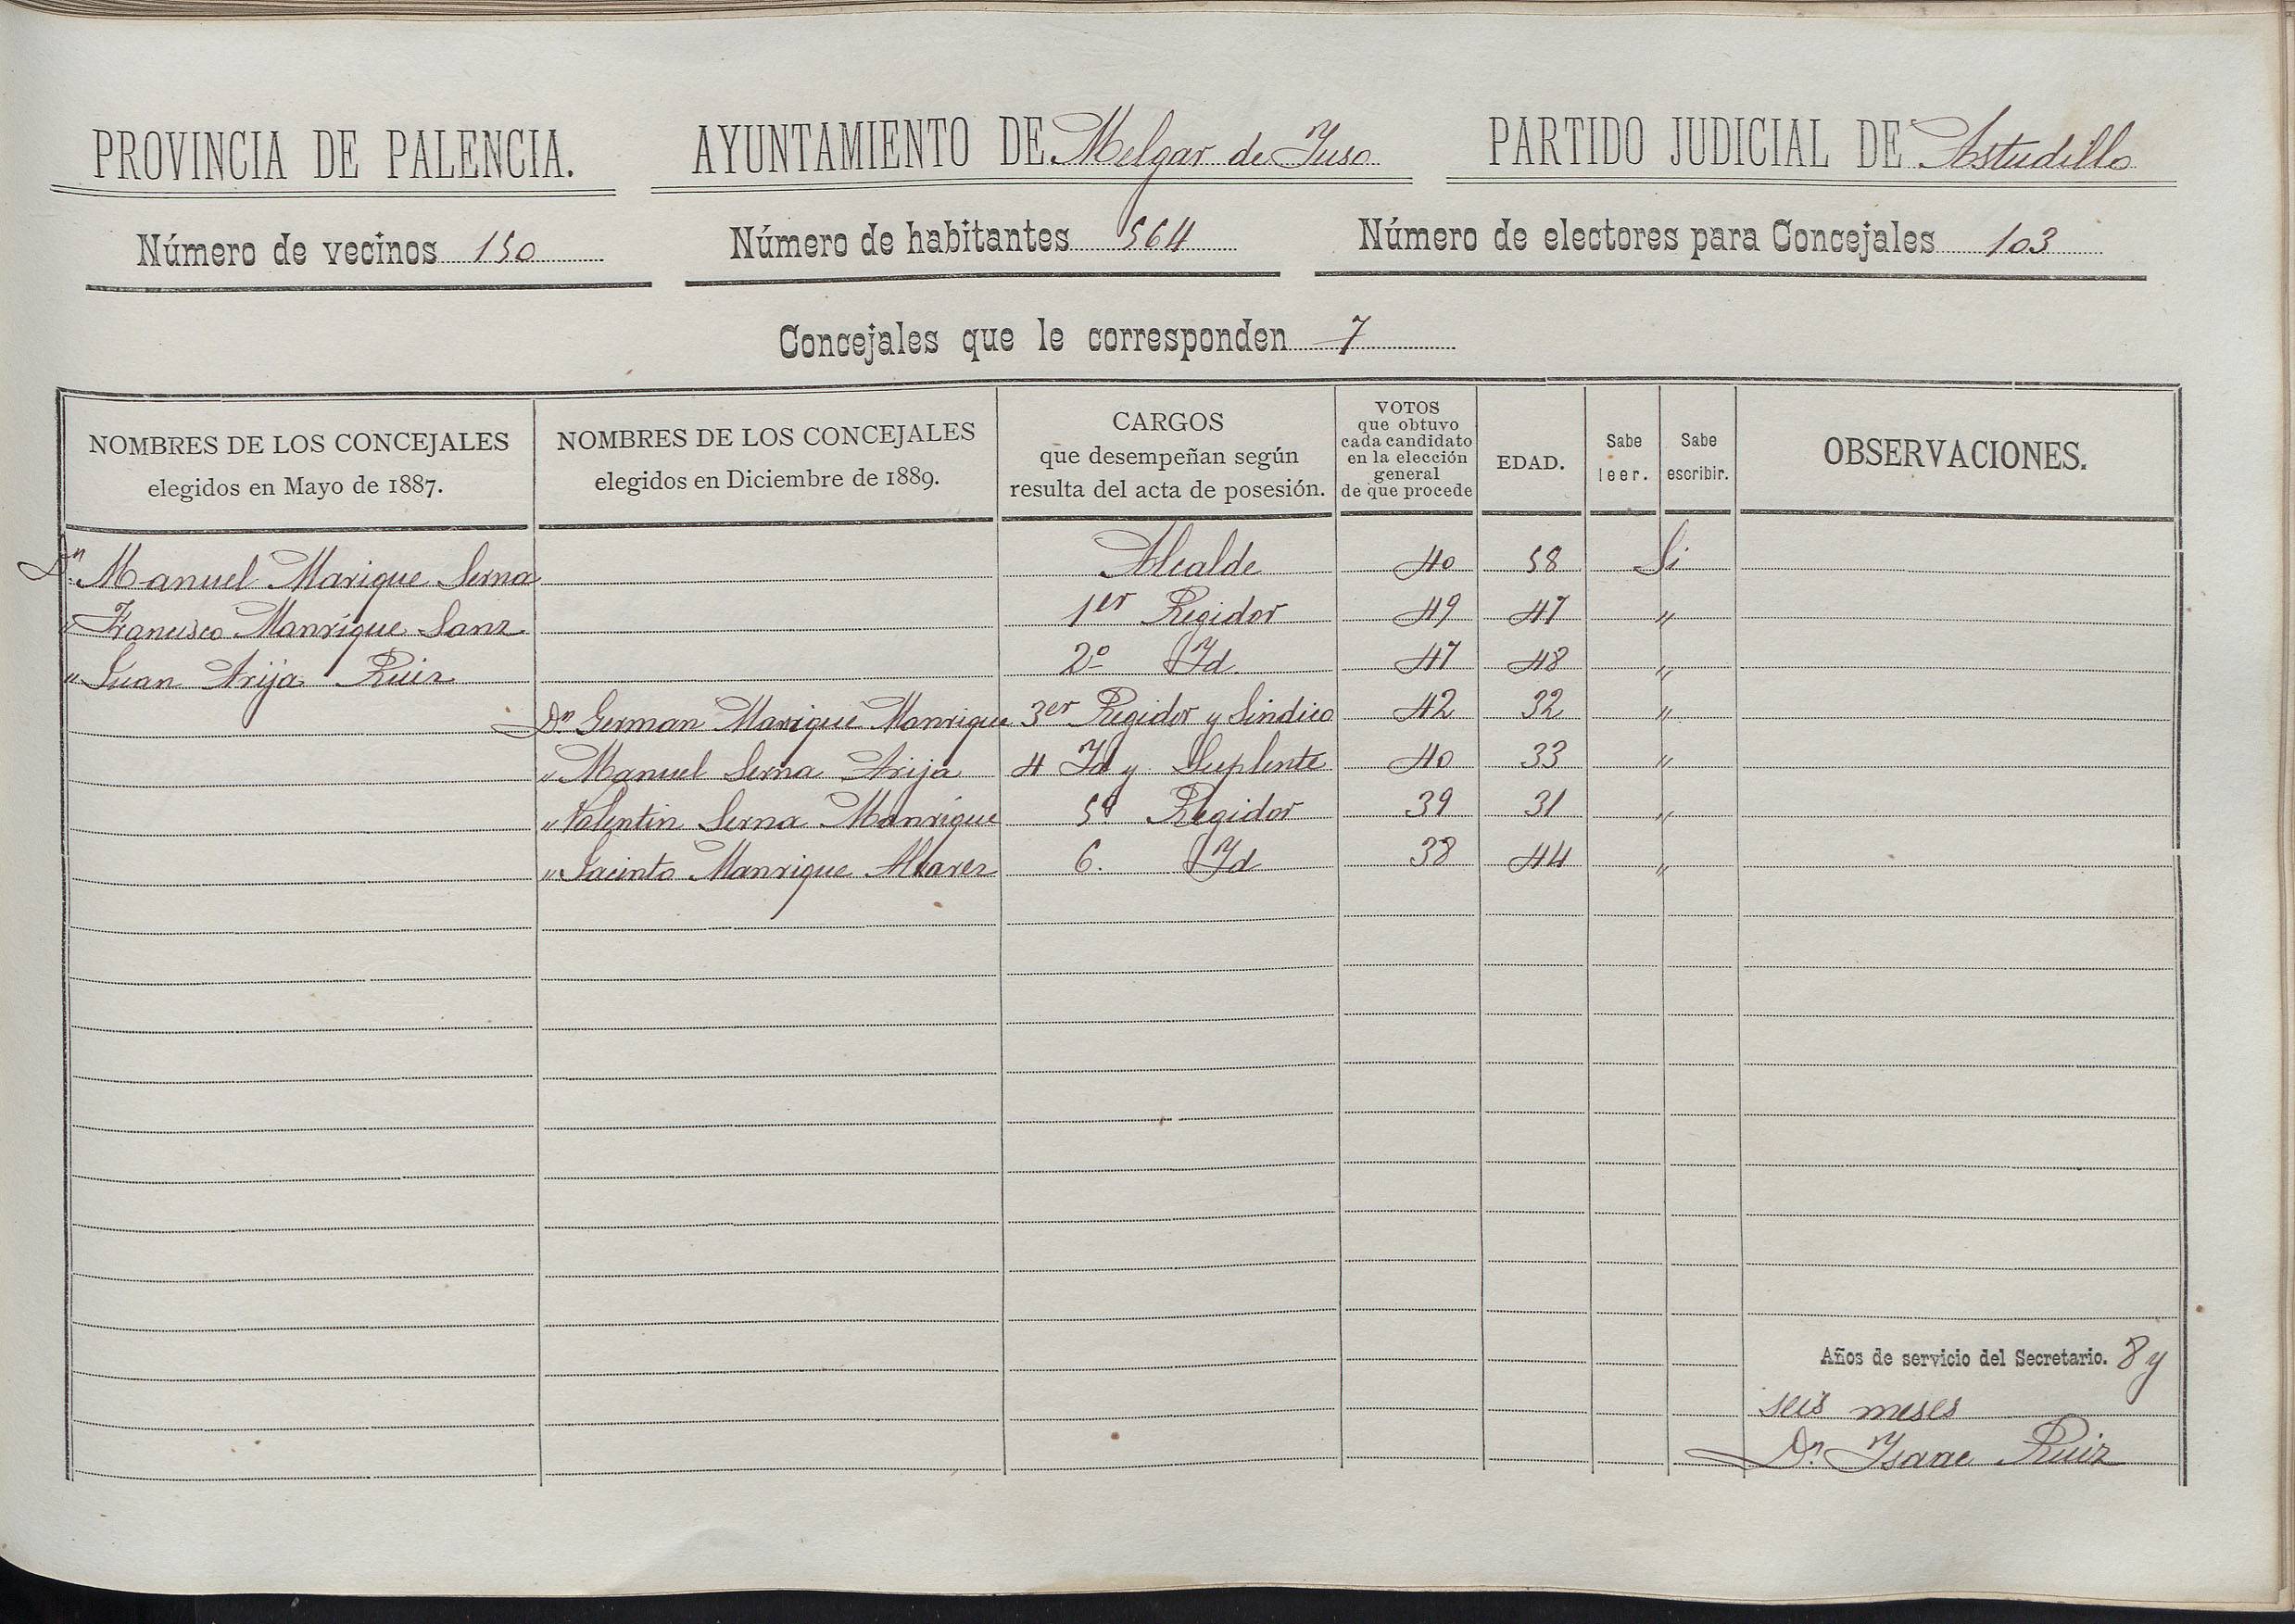 PROVINCIA DE PALENCIA. AYUNTAMIENTO DE Melgar de Yuso PARTIDO JUDICIAL DE Astudillo
Número de vecinos 150 Número de habitantes 564 Número de electores para Concejales 103
Concejales que le corresponden 7
NOMBRES DE LOS CONCEJALES
elegidos en Mayo de 1887.
NOMBRES DE LOS CONCEJALES
elegidos en Diciembre de 1889.
CARGOS
que desempeñan según
resulta del acta de posesión.
VOTOS
que obtuvo
cada candidato
en la elección
general
de que procede
EDAD.
Sabe
leer.
Sabe
escribir.
OBSERVACIONES.
Dn. Manuel Marique Serna Alcalde 40 58 Si
" Francisco Manrique Sanz 1er Regidor 49 47 "
" Juan Arija Ruiz 2º Id 47 48 "
Dn. German Manrique Manrique 3er Regidor y Sindico 42 32 "
" Manuel Serna Arija 4 Id y Suplente 40 33 "
" Valentin Serna Manrique 5º Regidor 39 31 "
" Jacinto Manrique Alvarez 6. Id 38 44 "
Años de servicio del Secretario. 8 y
seis meses
Dn. Isaac Ruiz